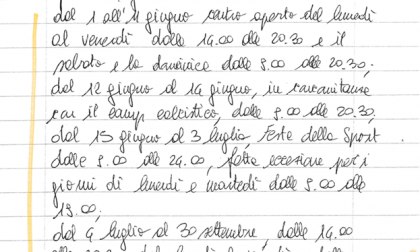 dal 1 all'11 giugno centro aperto dal lunedì
al venerdì dalle 14.00 alle 20.30 e il
sabato e la domenica dalle 9.00 alle 20.30.
dal 12 giugno al 14 giugno, in concomitanza
con il camp calcistico, dalle 9.00 alle 20.30,
dal 15 giugno al 3 luglio, Feste dello Sport
dalle 9.00 alle 24.00, fatta eccezione per i
giorni di lunedì e martedì dalle 9.00 alle
19.00;
dal 4 luglio al 30 settembre, dalle 14.00